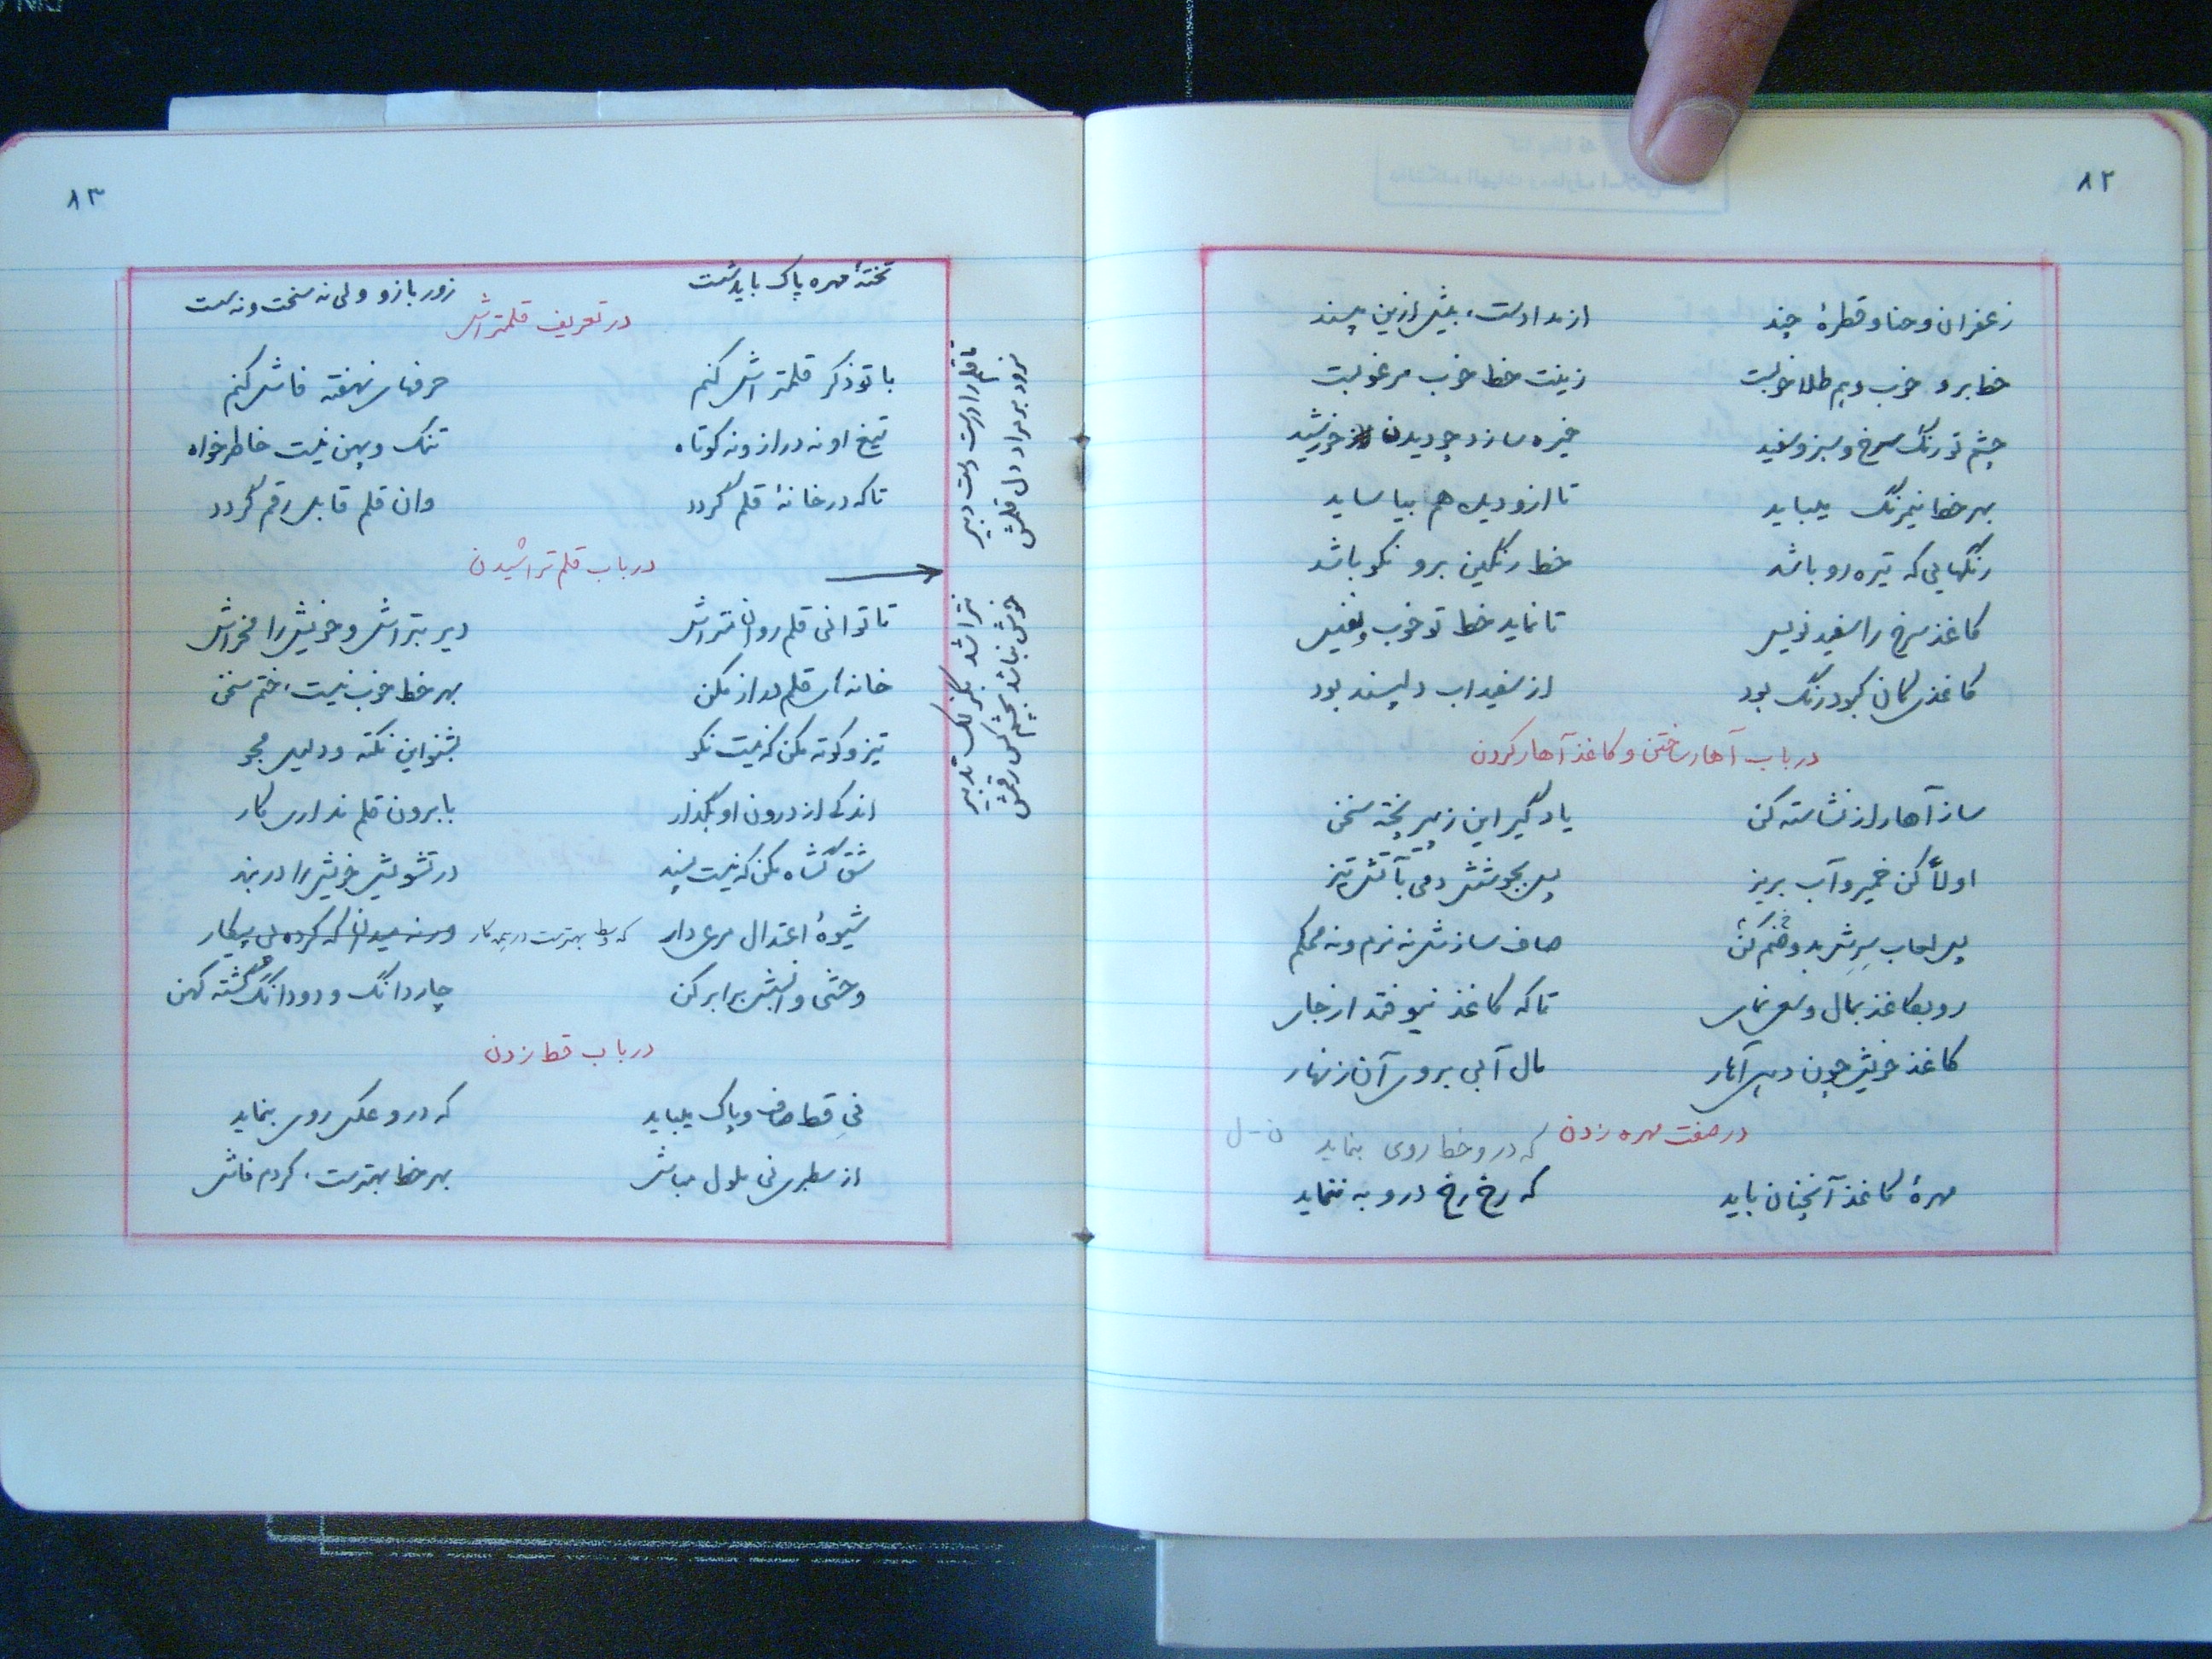 ۸۲
زعفران و حنا و قطرهٔ چند از مدادست، بیش ازین مپسند
خط برو خوب و هم طلا خوبست زینت خط خوب مرغوبست
چشم تو رنگ سرخ و سبز و سفید خیره سازد چو دیدن خورشید
بهر خط نیم رنگ میباید تا ازو دیده هم بیاساید
رنگهایی که تیره رو باشد خط رنگین برو نکو باشد
کاغذ سرخ را سفید نویس تا نماید خط تو خوب و نفیس
کاغذی کان کبود رنگ بود از سفیداب دلپسند بود
در باب آهار ساختن و کاغذ آهار کردن
ساز آهار از نشاسته کن یادگیر این ز پیر پخته سخن
اولاً کن خمیر و آب بریز پس بجوشش دمی بآتش تیز
پس لعاب سرش بدو ضم کن صاف سازش نه نرم و نه محکم
رو بکاغذ بمال و سعی نمای تا که کاغذ نیوفتد از جای
کاغذ خویش چون دهی آهار مال آبی بروی آن زنهار
در صفت مهره زدن که در و خط روی بنماید ن - ل
مهرهٔ کاغذ آنچنان باید که رخ رخ درو به ننماید
۸۳
تختهٔ مهره پاک باید شست زور بازو ولی نه سخت و نه سست
در تعریف قلمتراش
با تو ذکر قلمتراش کنم حرفهای نهفته فاش کنم
تیغ او نه دراز و نه کوتاه تنک و پهن نیست خاطرخواه
تا که در خانهٔ قلم گردد وان قلم قابل رقم گردد
در باب قلم تراشیدن
تا توانی قلم روان متراش دیر بتراش و خویش را مخراش
خانه‌ای قلم دراز مکن بهر خط خوب نیست، ختم سخن
تیز و کوته مکن که نیست نکو بشنو این نکته و دلیل مجو
اندکی از درون او بگذار با برون قلم نداری کار
شق گشاده مکن که نیست پسند در تشویش خویش را در بند
شیوهٔ اعتدال مرعی دار که وسط بهترست در همه کار ورنه میدان که کرده‌ای پیکار
وحشی و انسیش برابر کن چار دانگ و دو دانگ گشته کهن
در باب قط زدن
نی قط صاف و پاک میباید که درو عکس روی بنماید
از سطبری نی ملول مباش بهر خط بهترست، کردم فاش
تا قلم را درست دست دبیر
نرود بر مراد دل قلمش
نتراشد بگزلک تدبیر
خوش نباشد بچشم کس رقمش